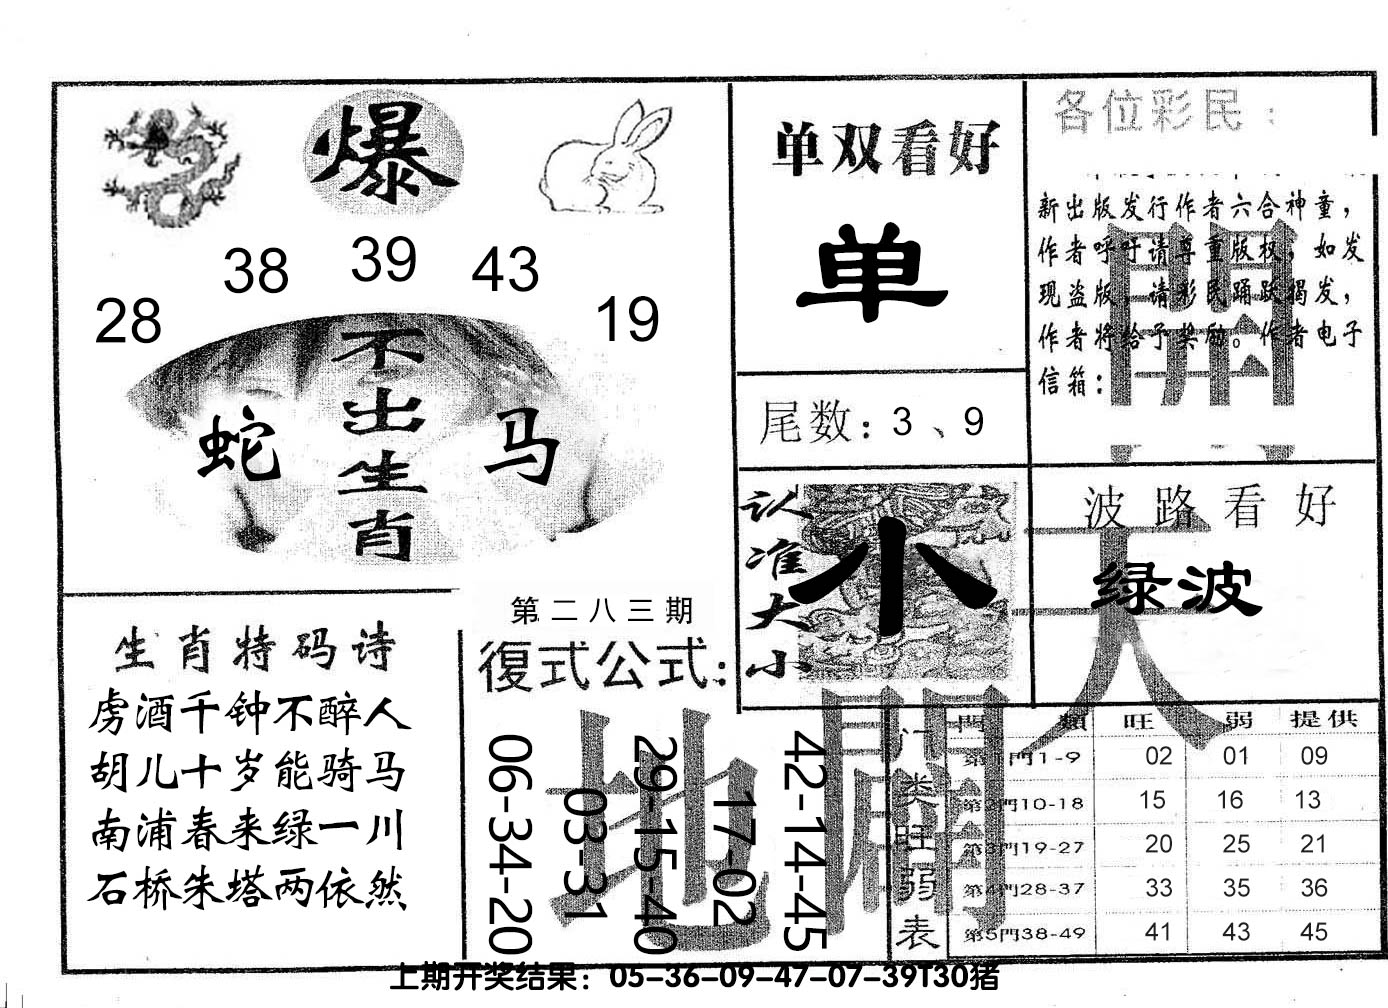 爆
28
38
39
43
19
不出生肖
蛇
马
单双看好
单
尾数：3、9
各位彩民：
新出版发行作者六合神童，
作者呼吁请尊重版权，如发
现盗版，请彩民踊跃揭发，
作者将给予奖励。作者电子
信箱：
開
认准大小
小
波路看好
绿波
天
生肖特码诗
虏酒千钟不醉人
胡儿十岁能骑马
南浦春来绿一川
石桥朱塔两依然
第二八三期
復式公式：
06-34-20
03-31
29-15-40
17-02
42-14-45
地
闢
门类旺弱表
門類 旺 弱 提供
第1門1-9 02 01 09
第2門10-18 15 16 13
第3門19-27 20 25 21
第4門28-37 33 35 36
第5門38-49 41 43 45
上期开奖结果：05-36-09-47-07-39T30猪